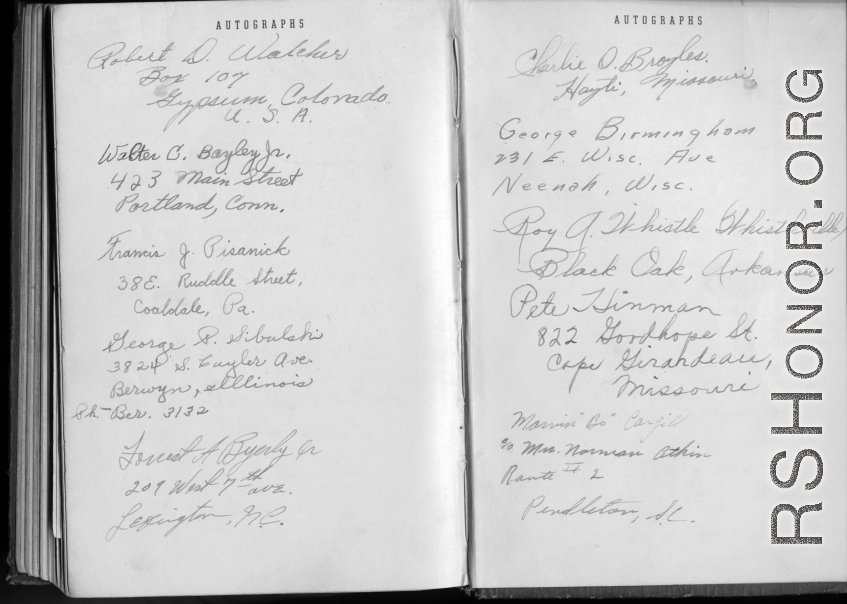 AUTOGRAPHS
Robert D. Walcher
Box 107
Gypsum, Colorado.
U. S. A.
Walter C. Bayley Jr.
423 Main Street
Portland, Conn.
Francis J. Pisanick
38 E. Ruddle Street,
Coaldale, Pa.
George P. Sibulski
3824 S. Cuyler Ave.
Berwyn, Illinois
Ph.- Ber. 3132
Forrest A Byerly Jr
209 West 7th ave.
Lexington, N.C.
AUTOGRAPHS
Charlie O. Broyles.
Hayti, Missouri.
George Birmingham
231 E. Wisc. Ave
Neenah, Wisc.
Roy A. Whistle
Black Oak, Arkansas
Pete Hinman
822 Goodhope St.
Cape Girardeau,
Missouri
Marvin "Bo" Cargill
c/o Mrs. Norman Atkin
Route # 2
Pendleton, S.C.
RSHONOR.ORG